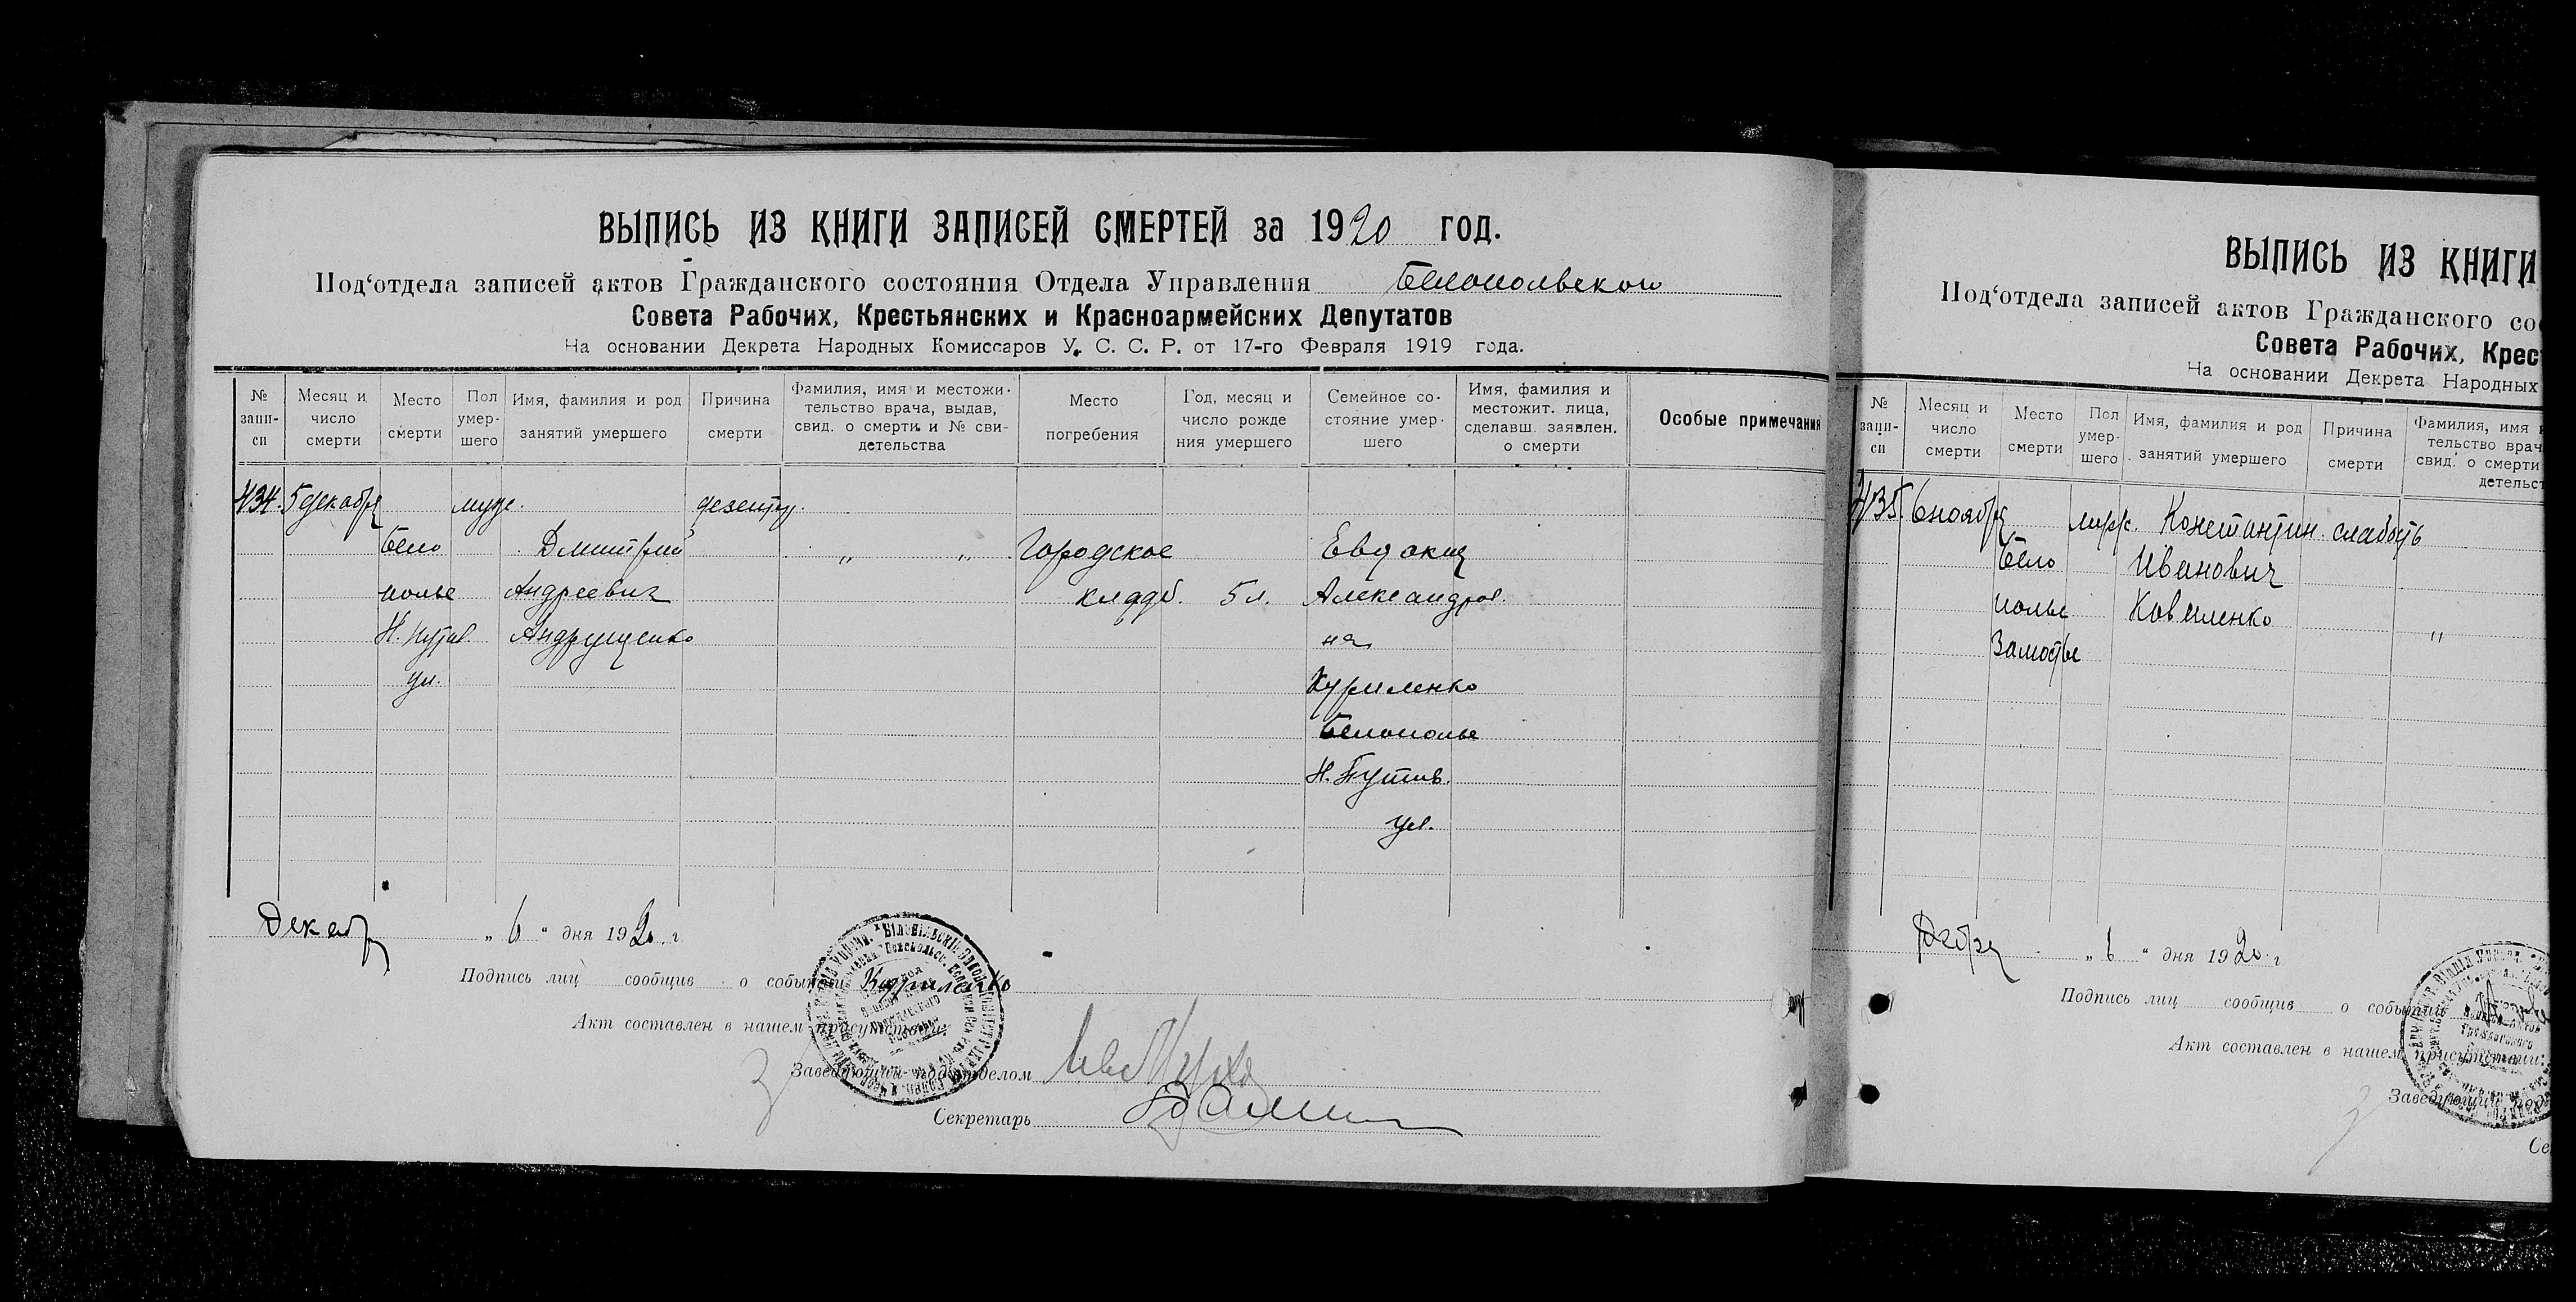 ВЫПИСЬ ИЗ КНИГИ ЗАПИСЕЙ СМЕРТЕЙ за 1920 год.
Под‘отдела записей актов Гражданского состояния Отдела Управления Белопольском
Совета Рабочих, Крестьянских и Красноармейских Депутатов
На основании Декрета Народных Комиссаров У. С. С. Р. от 17-го Февраля 1919 года.
№ запи-си
Месяц и число смерти
Место смерти
Пол умер-шего
Имя, фамилия и род занятий умершего
Причина смерти
Фамилия, имя и местожи-тельство врача, выдав, свид. о смерти и № сви-детельства
Место погребения
Год, месяц и число рожде ния умершего
Семейное со-стояние умер-шего
Имя, фамилия и местожит. лица, сделавш. заявлен. о смерти
Особые примечания
434. 5 декабря муж. дезентер.
Бело Дмитрий „ „ Городское Евдокия
полье Андреевич кладб. 5 л. Александров.
Н. Путив. Андрущенко на
ул. Куриленко
Белополье
Н. Путив.
ул.
Декабр „ 6 “ дня 1920 г
Подпись лиц сообщив о событии Куриленко
Акт составлен в нашем присутствии:
Заведующий под‘отделом
Секретарь
ВЫПИСЬ ИЗ КНИГИ
Под‘отдела записей актов Гражданского со
Совета Рабочих, Крес
На основании Декрета Народных
№ запи-си
Месяц и число смерти
Место смерти
Пол умер-шего
Имя, фамилия и род занятий умершего
Причина смерти
Фамилия, имя тельство врач свид. о смерти детельст
435. 6 ноября муж. Константин слабость
Бело Иванович
полье Коваленко „
Замостье
„ 6 “ дня 1920 г
Подпись лиц сообщив о событии
Акт составлен в нашем присутствии:
Заведующий под
Се